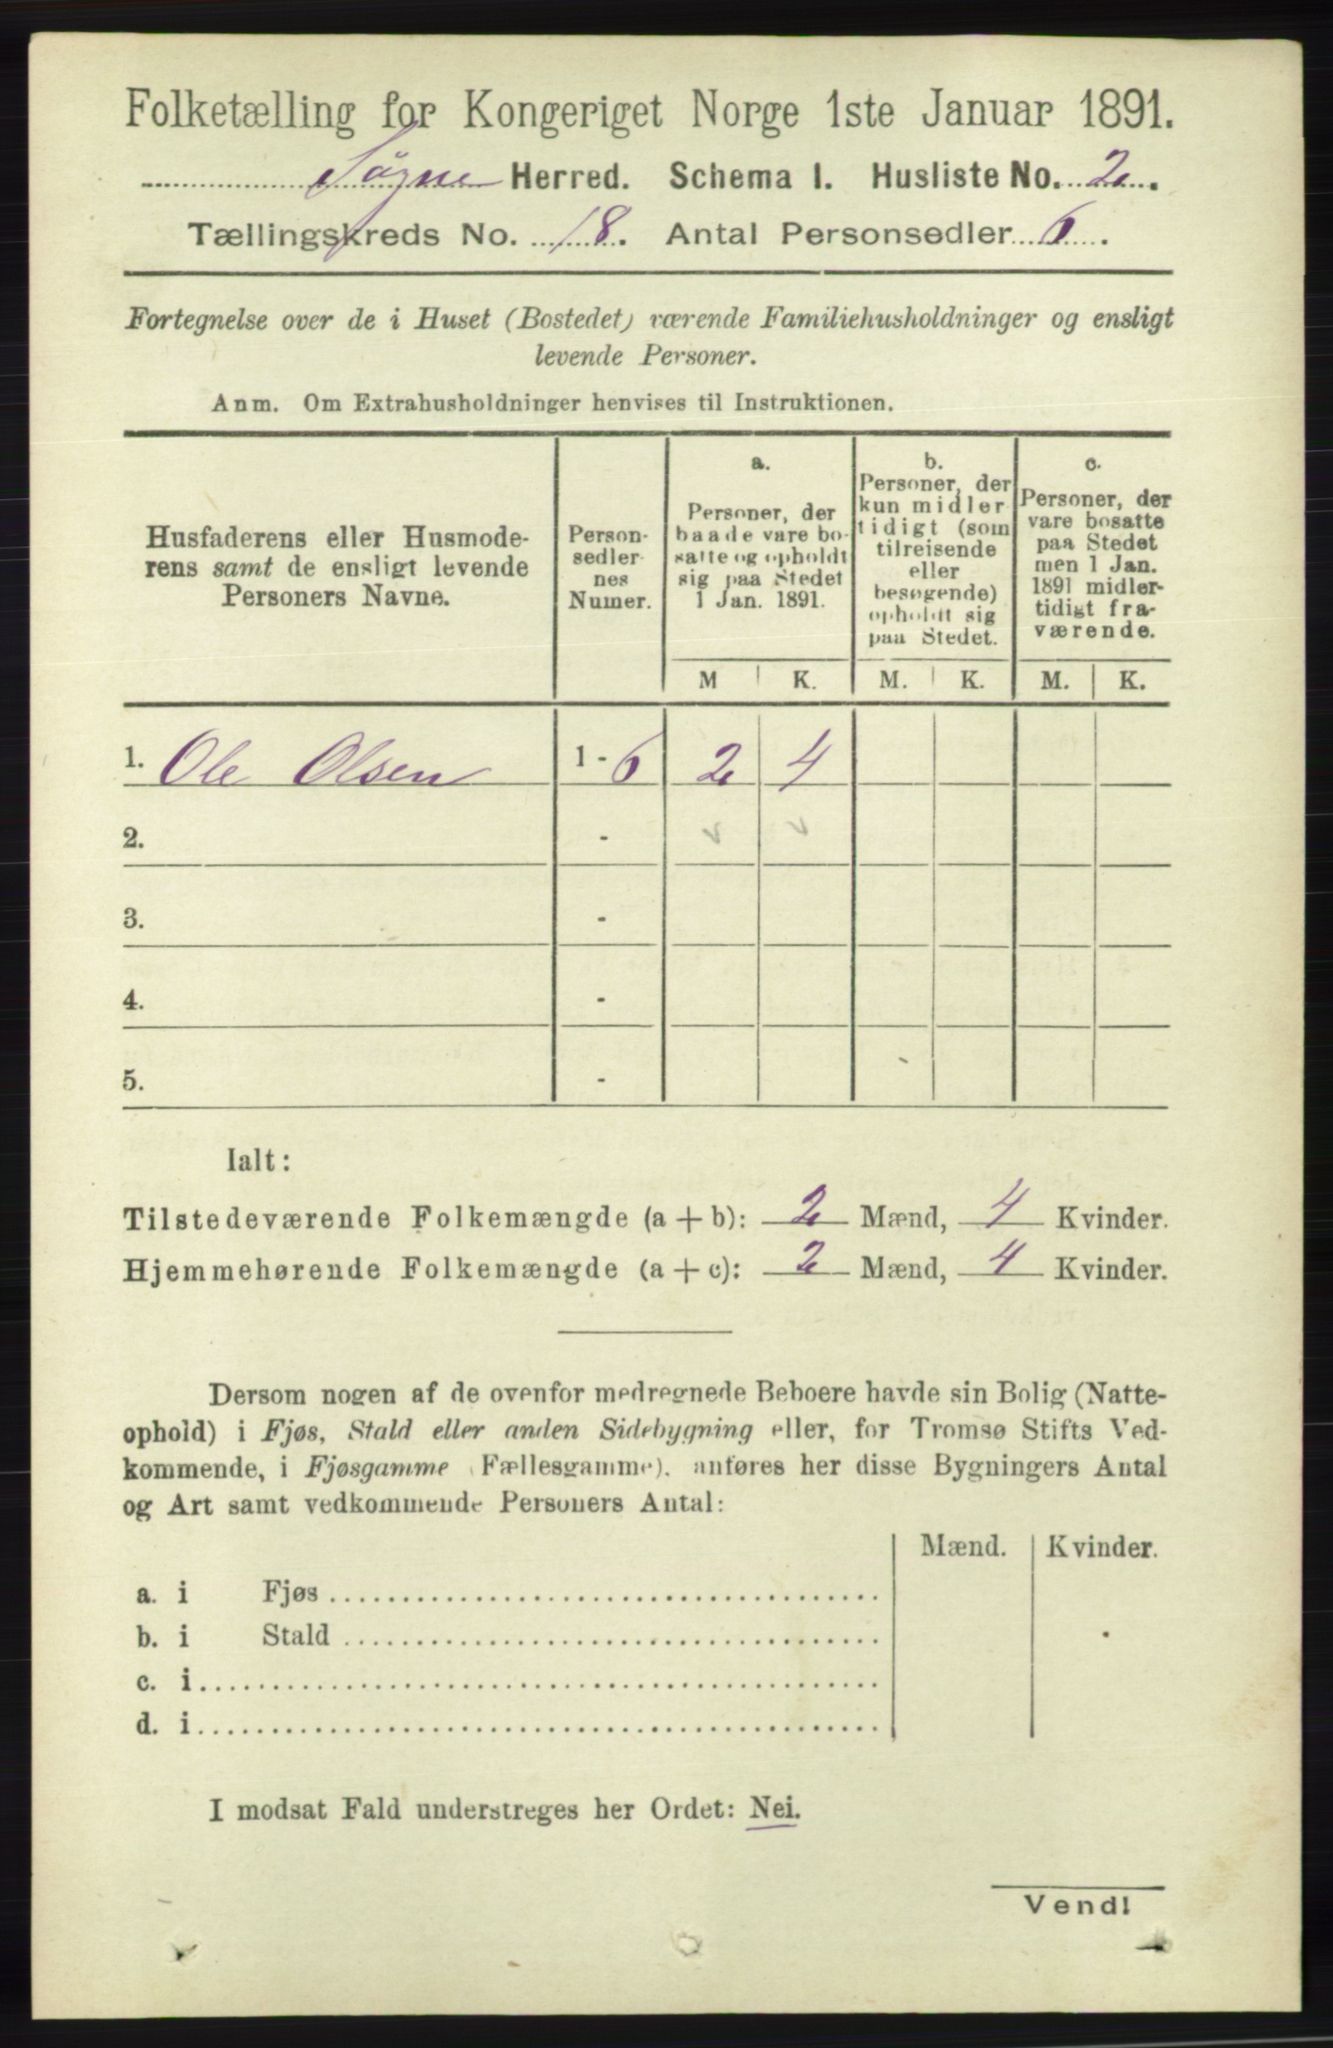 Folketælling for Kongeriget Norge 1ste Januar 1891.
Søgne Herred. Schema I. Husliste No. 2.
Tællingskreds No. 18. Antal Personsedler 6.
Fortegnelse over de i Huset (Bostedet) værende Familiehusholdninger og ensligt
levende Personer.
Anm. Om Extrahusholdninger henvises til Instruktionen.
Husfaderens eller Husmode-
rens samt de ensligt levende
Personers Navne.
Person-
sedler-
nes
Numer.
a.
Personer, der
baade vare bo-
satte og opholdt
sig paa Stedet
1 Jan. 1891.
b.
Personer, der
kun midler
tidigt (som
tilreisende
eller
besøgende)
opholdt sig
paa Stedet.
c.
Personer, der
vare bosatte
paa Stedet
men 1 Jan.
1891 midler-
tidigt fra-
værende.
M K. M. K. M. K.
1. Ole Olsen 1 - 6 2 4
2. -
3. -
4. -
5. -
Ialt:
Tilstedeværende Folkemængde (a + b): 2 Mænd, 4 Kvinder.
Hjemmehørende Folkemængde (a + c): 2 Mænd, 4 Kvinder.
Dersom nogen af de ovenfor medregnede Beboere havde sin Bolig (Natte-
ophold) i Fjøs, Stald eller anden Sidebygning eller, for Tromsø Stifts Ved-
kommende, i Fjøsgamme (Fællesgamme), anføres her disse Bygningers Antal
og Art samt vedkommende Personers Antal:
Mænd. Kvinder.
a. i Fjøs
b. i Stald
c. i
d. i
I modsat Fald understreges her Ordet: Nei.
Vend!